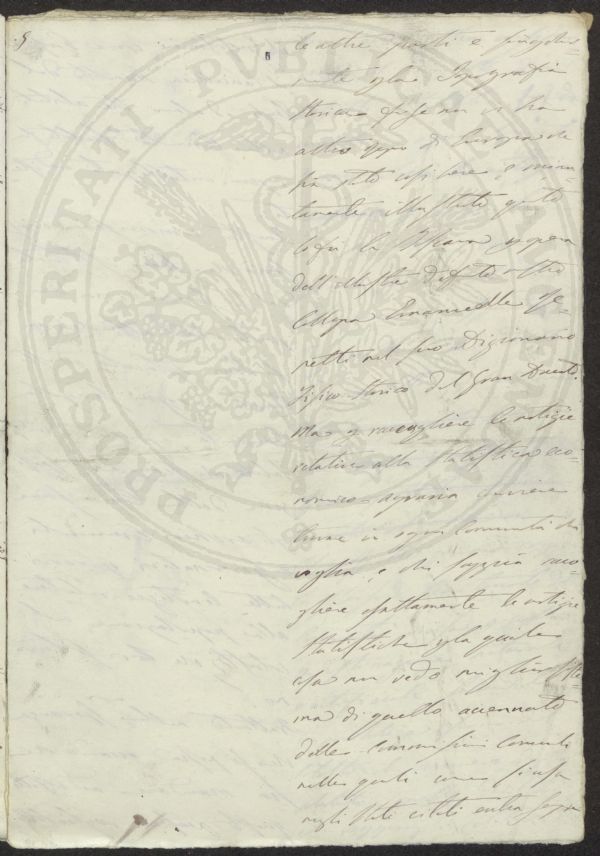 5
le altre parti e singolar-
mente per la Topografia
Storica forse non vi ha
altro di Europa che
sia stato così bene e minu-
tamente illustrato quanto
lo fu la Toscana per opera
dell'illustre defunto nostro
Collega Emanuelle Re-
petti nel suo Dizionario
fisico storico del Gran Ducato.
Ma per raccogliere le notizie
relative alla Statistica eco-
nomico-agraria conviene
in ogni Comunità chi
voglia, e chi sappia racco-
gliere esattamente le notizie
Statistiche per la quale
cosa non vedo migliore siste-
ma di quello accennato
delle Commissioni Comunali
nelle quali come si usa
negli Stati citati entra sopra
PROSPERITATI PVBLICAE